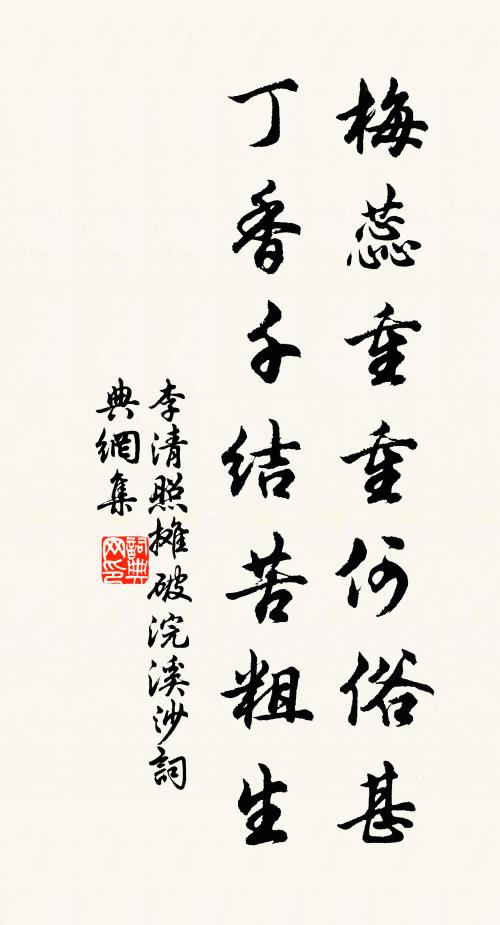 梅蕊重重何俗甚
丁香千结苦粗生
李清照摊破浣溪沙詞
典網集
詞典
网印